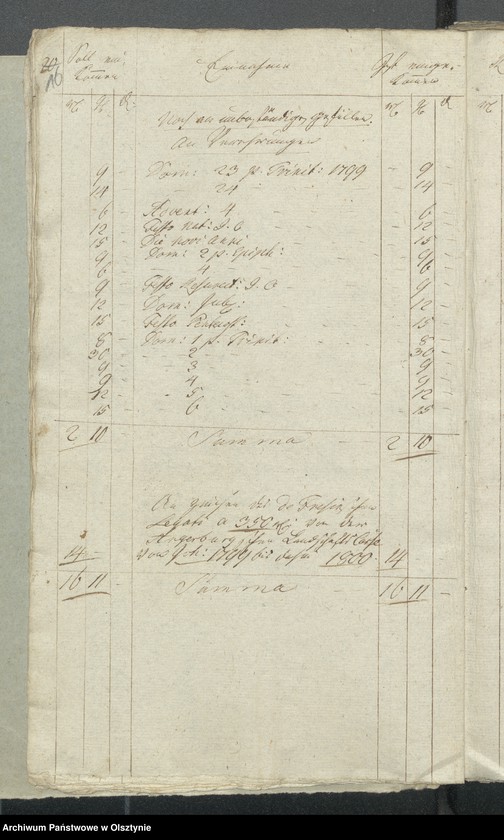 20 Soll ein- Einnahme Ist einge-
16 kommen kommen
rtl. gr. d. rtl. gr. d
Noch an unbeständigen Gefällen.
An Verehrungen
9 - Dom: 23 p. Trinit: 1799 - 9 -
14 - 24 - 14 -
6 - Advent: 4 - 6 -
12 - Festo Nat: J. C. - 12 -
15 - Die Novi Anni - 15 -
9 - Dom: 2 p. Epiph: - 9 -
6 - 4 - 6 -
9 - Festo Resurect: J. C. - 9 -
12 - Dom: Jubil: - 12 -
15 - Festo Pentecost: - 15 -
8 - Dom: 1 p. Trinit: - 8 -
30 - 2 - 30 -
9 - 3 - 9 -
9 - 4 - 9 -
12 - 5 - 12 -
15 - 6 - 15 -
2 10 - Summa - 2 10 -
An Zinsen
Legati a 350 rtl. von der
Angerburgschen Landschafts
14 - von Joh: 1799 bis dahin 1800 - 14 -
16 11 - Summa - 16 11 -
Archiwum Państwowe w Olsztynie